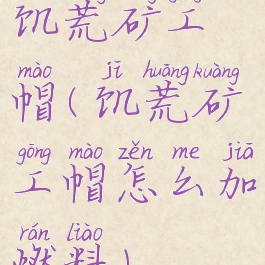 饥荒矿工
mào jī huāng kuàng
帽(饥荒矿
gōng mào zěn me jiā
工帽怎么加
rán liào
燃料)